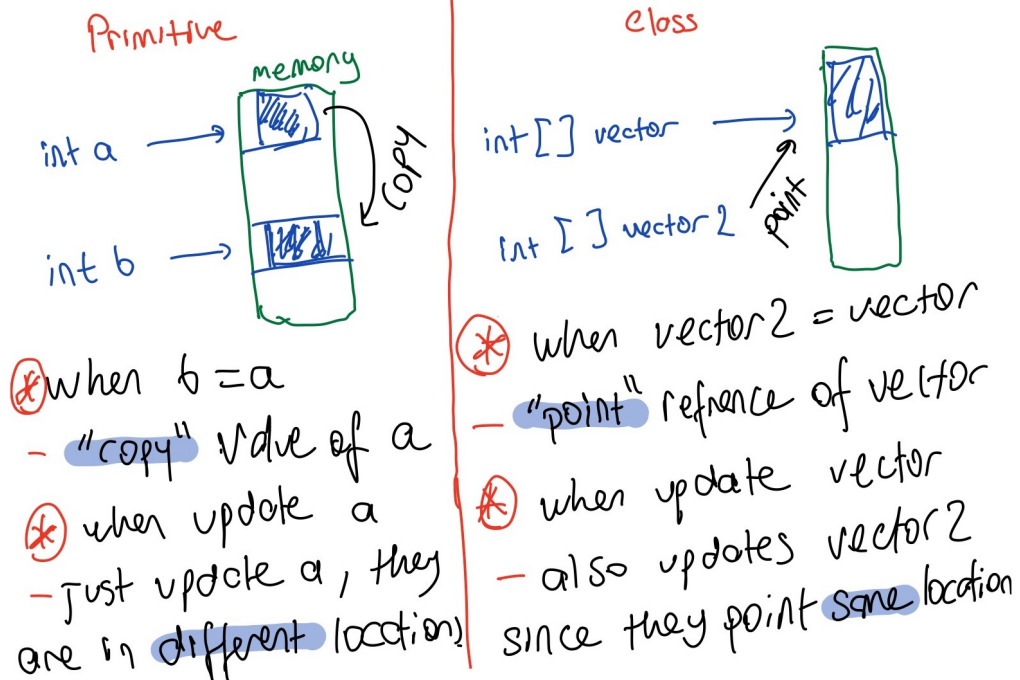 Primitive
memory
int a
copy
int b
* when b = a
- "copy" value of a
* when update a
- just update a, they
are in different locations
class
int [] vector
point
int [] vector2
* when vector2 = vector
- "point" refrence of vector
* when update vector
- also updates vector2
since they point same location